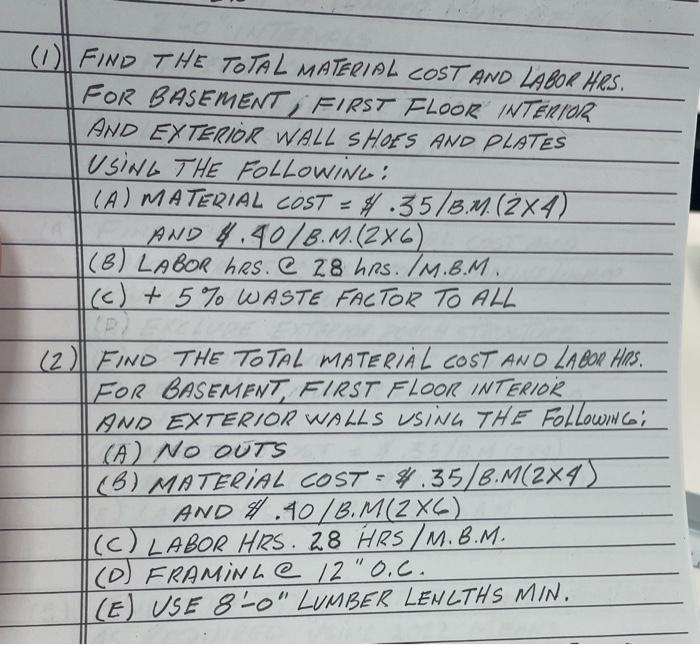 (1) FIND THE TOTAL MATERIAL COST AND LABOR HRS.
FOR BASEMENT, FIRST FLOOR INTERIOR
AND EXTERIOR WALL SHOES AND PLATES
USING THE FOLLOWING:
(A) MATERIAL COST = $ .35/B.M. (2X4)
AND $.40/B.M.(2X6)
(B) LABOR hRS. @ 28 hRS. /M.B.M.
(C) + 5% WASTE FACTOR TO ALL
(2) FIND THE TOTAL MATERIAL COST AND LABOR HRS.
FOR BASEMENT, FIRST FLOOR INTERIOR
AND EXTERIOR WALLS USING THE FOLLOWING:
(A) NO OUTS
(B) MATERIAL COST = $.35/B.M(2X4)
AND $ .40/B.M(2X6)
(C) LABOR HRS. 28 HRS/M.B.M.
(D) FRAMING @ 12" O.C.
(E) USE 8'-0" LUMBER LENGTHS MIN.